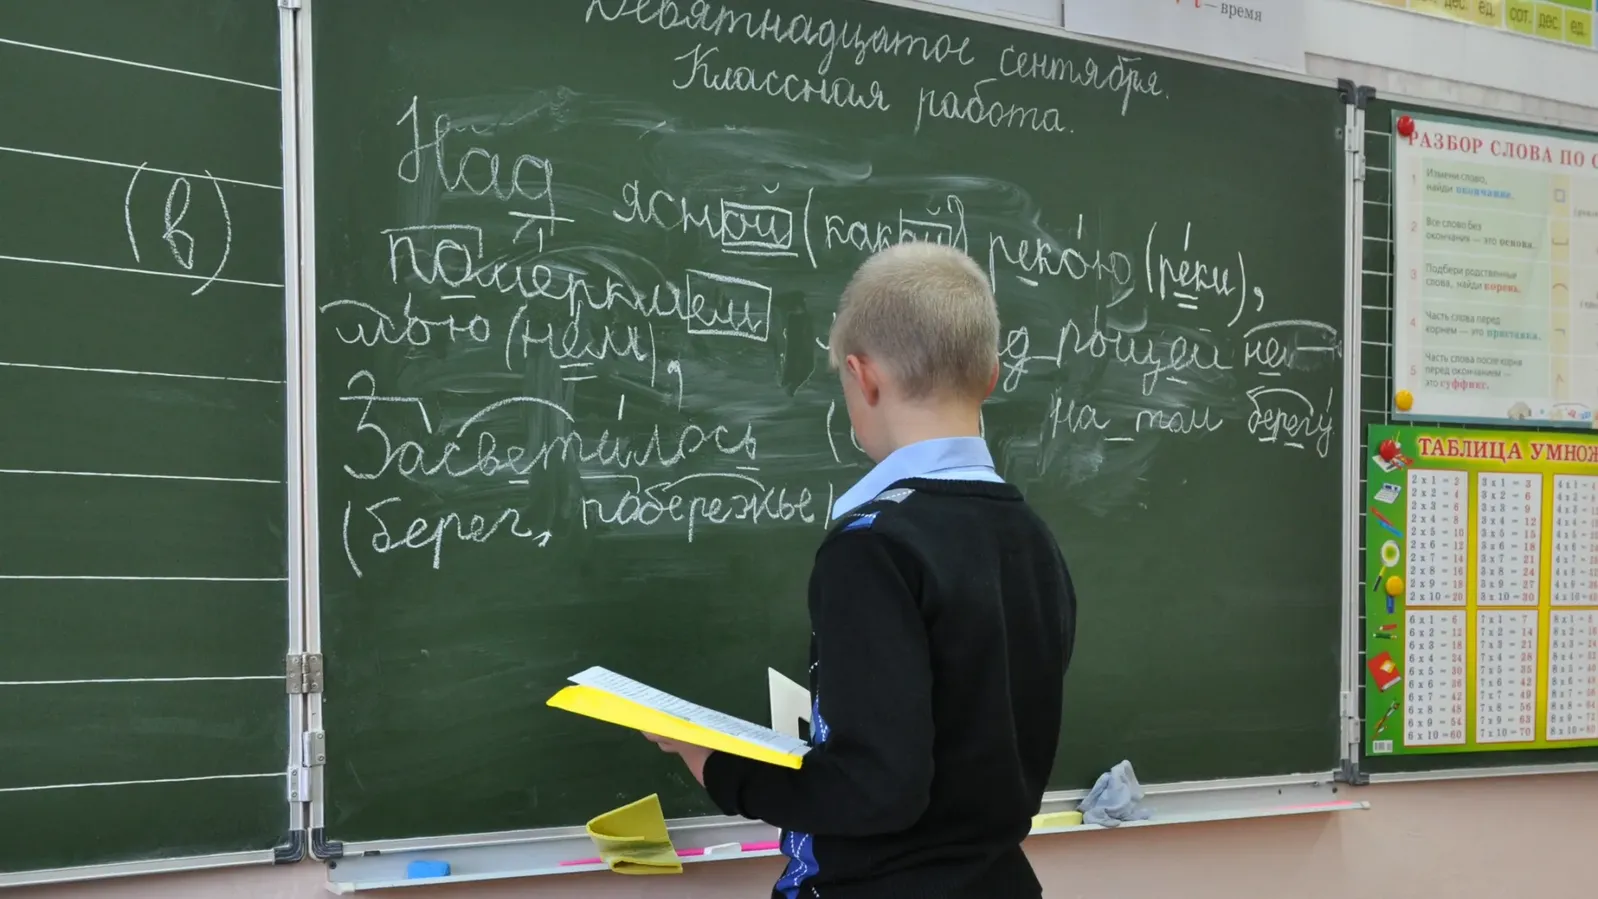 Девятнадцатое сентября.
Классная работа.
Над ясной (какой) рекою (реки),
померкшем
тью (нем), рощей
Засветилось на том берегу
(берег, побережье)
(в)
— время
дес. ед.
сот. дес. ед.
РАЗБОР СЛОВА ПО
1 Измени слово,
найди окончание.
2 Все слово без
окончания — это основа.
3 Подбери родственные
слова, найди корень.
4 Часть слова перед
корнем — это приставка.
5 Часть слова после корня
перед окончанием —
это суффикс.
ТАБЛИЦА УМНОЖ
2 x 1 = 2
2 x 2 = 4
2 x 3 = 6
2 x 4 = 8
2 x 5 = 10
2 x 6 = 12
2 x 7 = 14
2 x 8 = 16
2 x 9 = 18
2 x 10 = 20
3 x 1 = 3
3 x 2 = 6
3 x 3 = 9
3 x 4 = 12
3 x 5 = 15
3 x 6 = 18
3 x 7 = 21
3 x 8 = 24
3 x 9 = 27
3 x 10 = 30
6 x 1 = 6
6 x 2 = 12
6 x 3 = 18
6 x 4 = 24
6 x 5 = 30
6 x 6 = 36
6 x 7 = 42
6 x 8 = 48
6 x 9 = 54
6 x 10 = 60
7 x 1 = 7
7 x 2 = 14
7 x 3 = 21
7 x 4 = 28
7 x 5 = 35
7 x 6 = 42
7 x 7 = 49
7 x 8 = 56
7 x 9 = 63
7 x 10 = 70